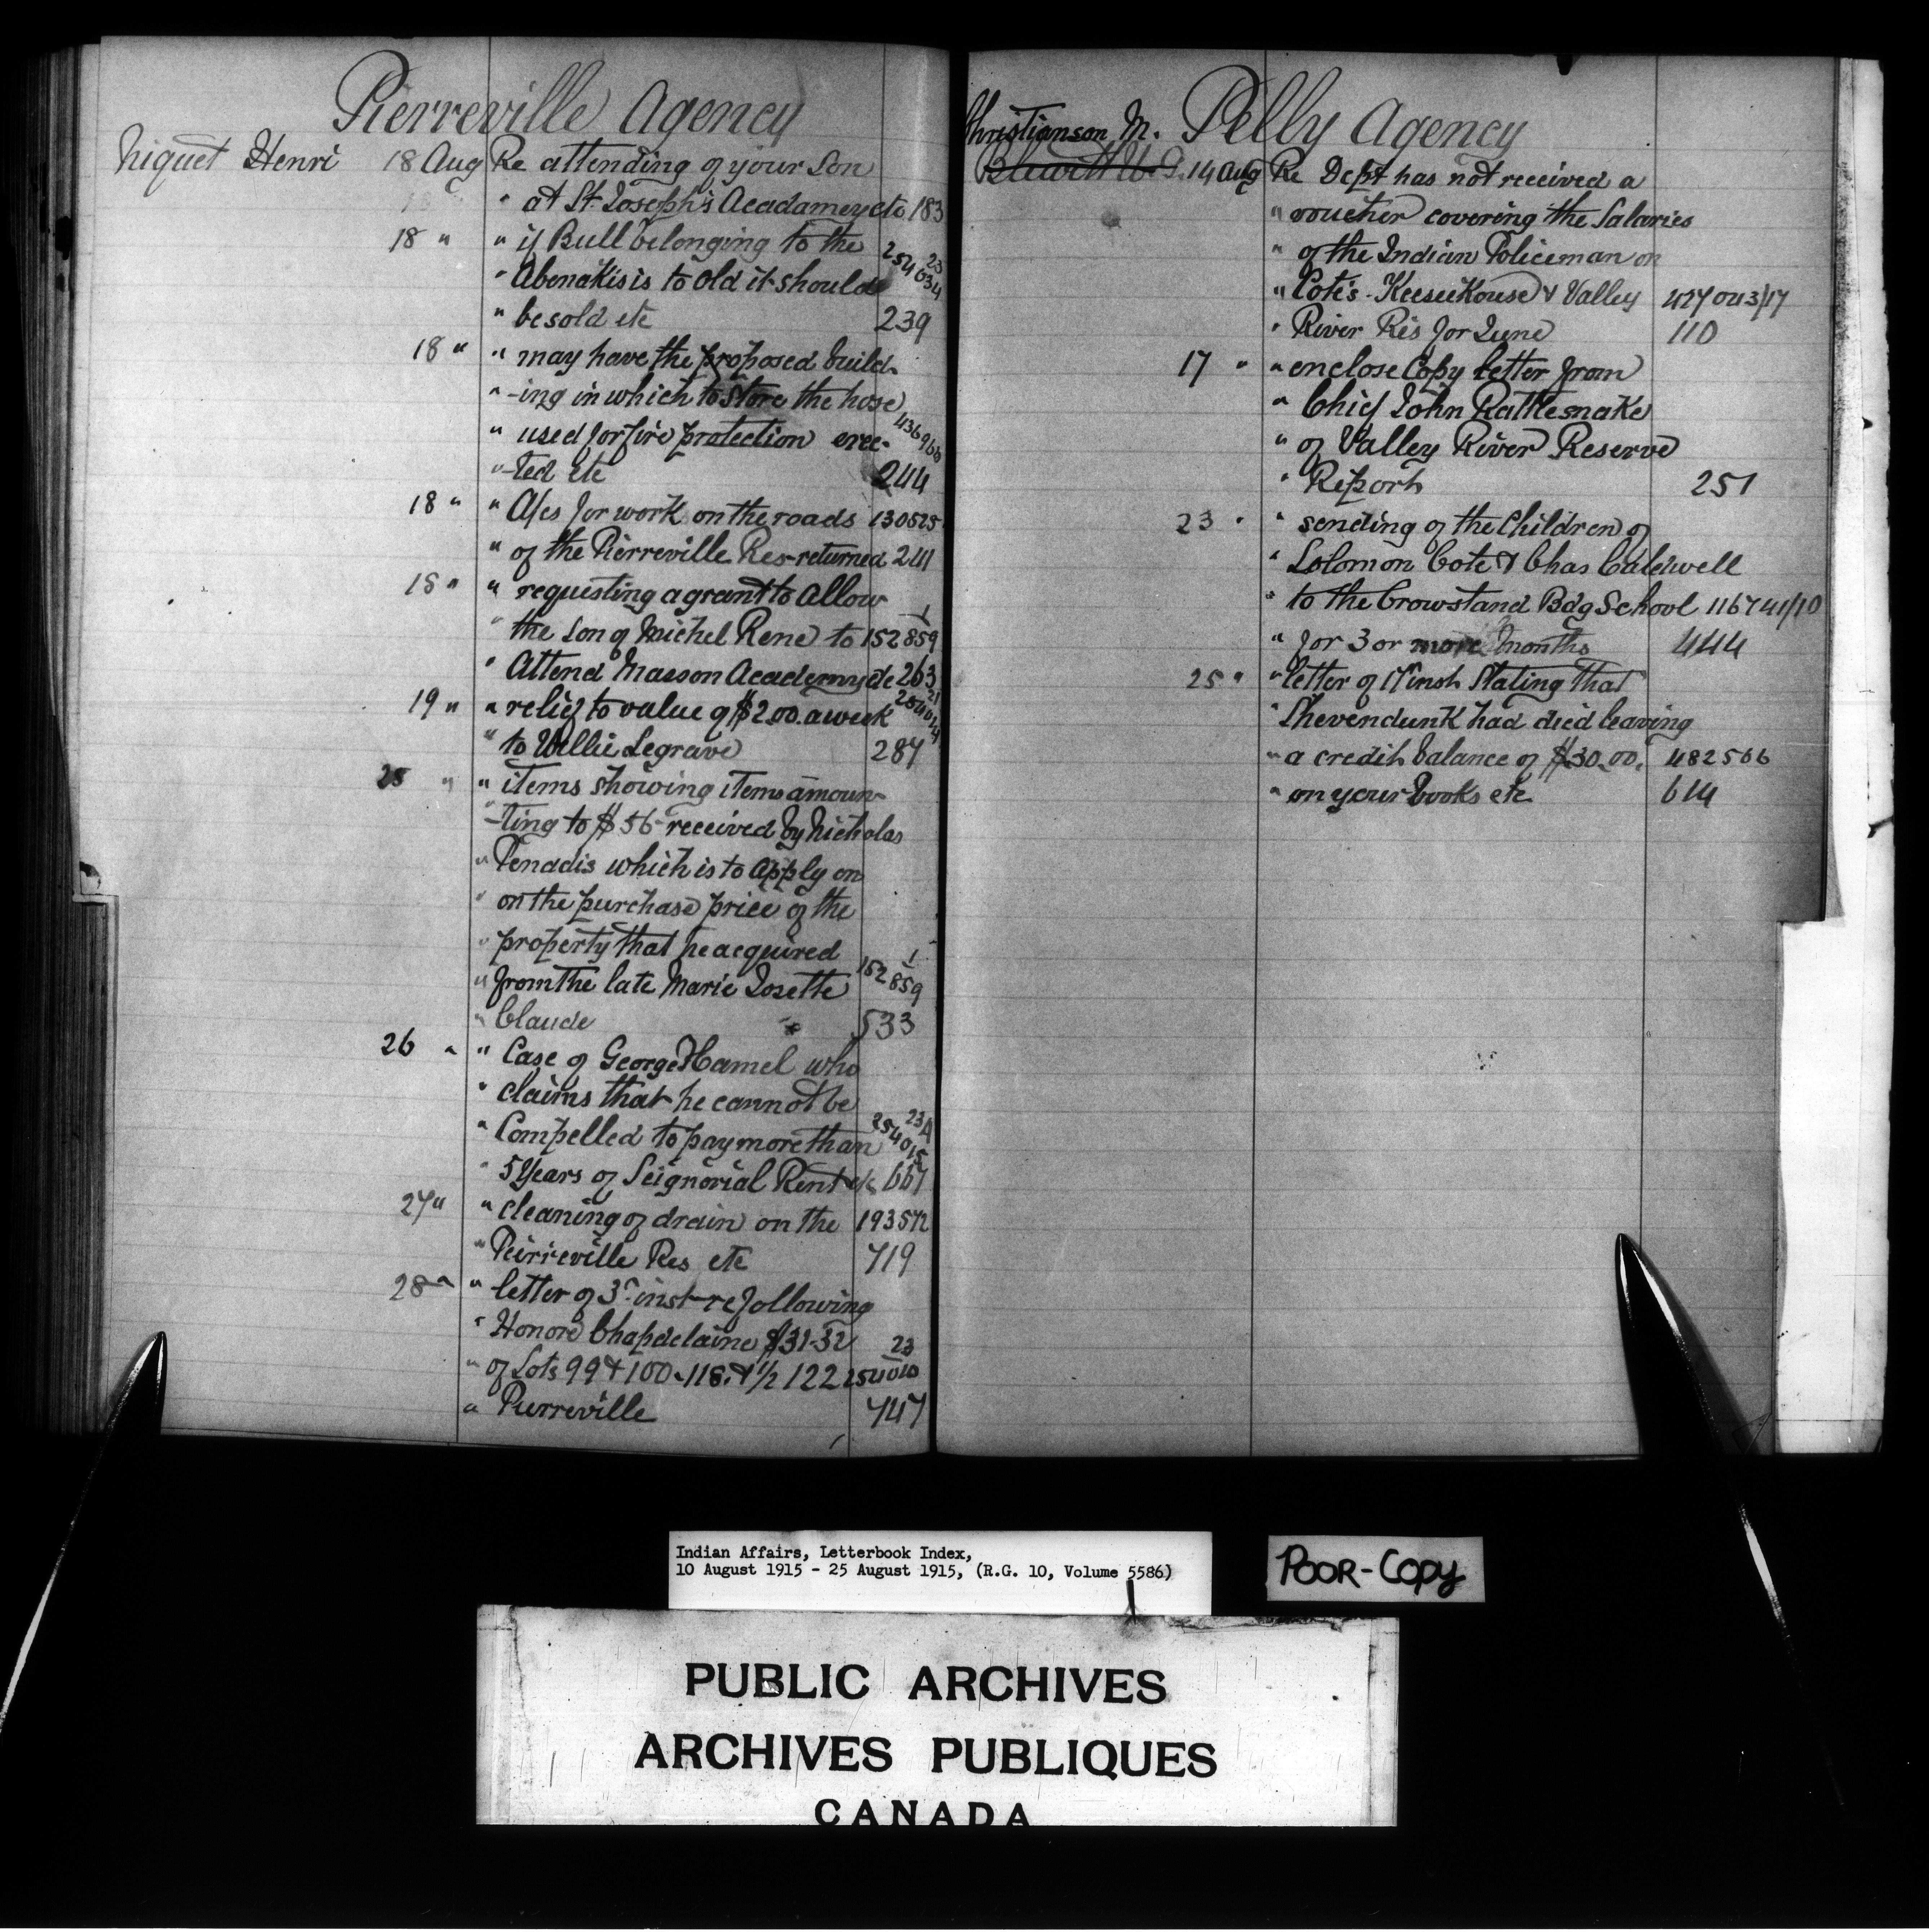 Pierreville Agency
Niquet Henri 18 Aug Re attending of your Son
" at St. Joseph's Acadamey etc 183
18 " " if Bull belonging to the 23
" Abenakis is to old it should 254034
" be sold etc 239
18 " " may have the proposed build-
" -ing in which to store the hose
" used for fire protection erec- 436966
" -ted etc 244
18 " " A/cs for work on the roads 130525
" of the Pierreville Res returned 241
18 " " requesting a grant to allow 1
" the son of Michel Rene to 152859
" Attend Masson Academy etc 263
19 " " relief to value of $2.00 a week
" to Willie Legrave 287
25 " " items showing items amoun-
" -ting to $56 received by Nicholas
" Penadis which is to apply on
" on the purchase price of the
" property that he acquired 1
" from the late Marie Josette 152859
" Claude 533
26 " " Case of George Hamel who
" claims that he cannot be 23A
" Compelled to pay more than 254015
" 5 Years of Seignorial Rent etc 667
27 " " cleaning of drain on the 193572
" Peirreville Res etc 719
28 " " letter of 3r inst re following
" Honore Chapdelaine $31-32 23
" of Lots 99 & 100 - 118 & 1/2 122 254010
" Pierreville 747
Pelly Agency
Christianson M.
14 Aug Re Dept has not received a
" voucher covering the Salaries
" of the Indian Policeman on
" Cote's - Keeseekouse & Valley 427043/17
" River Res for June 110
17 " " enclose Copy letter from
" Chief John Rattlesnake
" of Valley River Reserve
" Report 251
23 " " sending of the Children of
" Solomon Cote & Chas Caldwell
" to the Crowstand Bdg School 116741/10
" for 3 or more months 444
25 " " letter of 17 inst Stating that
" Shevendunk had died leaving
" a credit balance of $30.00. 482566
" on your books etc 614
Indian Affairs, Letterbook Index,
10 August 1915 - 25 August 1915, (R.G. 10, Volume 5586)
POOR-COPY
PUBLIC ARCHIVES
ARCHIVES PUBLIQUES
CANADA